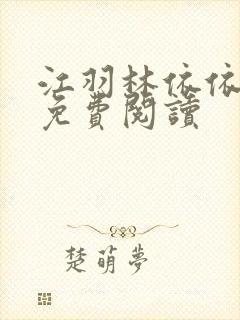 江羽林依依
免費閱讀
楚萌夢